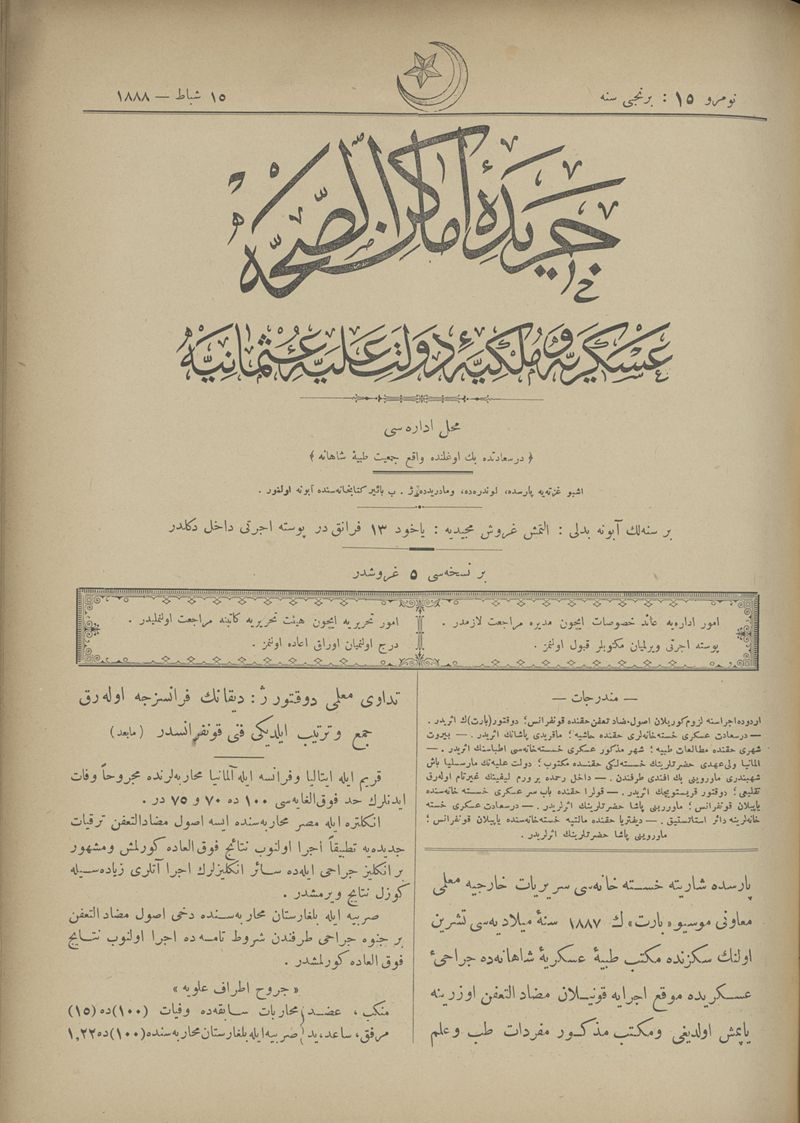 نومرو ١٥ : برنجی سنه
١٥ شباط — ١٨٨٨
جریدهٔ اماكن الصحّه
عسكریه و ملكیهٔ دولت علیهٔ عثمانیه
محل اداره‌سی
﴿ درسعادتده بك اوغلنده واقع جمعیت طبیهٔ شاهانه ﴾
اشبو غزته‌یه پارسده، لوندره‌ده، ومادریدده ژ . ب بائیر كتابخانه‌سنده آبونه اولنور .
بر سنه‌لك آبونه بدلی : التمش غروش مجیدیه : یاخود ١٣ فرانق در پوسته اجرتی داخل دكلدر
بر نسخه‌سی ٥ غروشدر
امور اداریه‌یه عائد خصوصات ایچون مدیره مراجعت لازمدر .
پوسته اجرتی ویرلمیان مكتوبلر قبول اولنمز .
امور تحریریه ایچون هیئت تحریریه كاتبنه مراجعت اولنملیدر .
درج اولنمیان اوراق اعاده اولنمز .
— مندرجات —
اردوده اجراسنه لزوم كوریلان اصول ضد تعفن حقنده قونفرانس ؛ دوقتور (بارت)ك اثریدر .
— درسعادت عسكری خسته‌خانه‌لری حقنده حاشیه ؛ ماقریدی پاشانك اثریدر . — بیروت
شهری حقنده مطالعات طبیه ؛ شهر مذكور عسكری خسته‌خانه‌سی اطباسنك اثریدر . —
المانیا ولی‌عهدی حضرتلرینك خسته‌لكی حقنده مكتوب ؛ دولت علیه‌نك مارسلیا باش
شهبندری ماوروینی بك افندی طرفندن . — داخل رحمده بر ورم لیفینك غیرتام اوله‌رق
تقلیعی ؛ دوقتور قریستوویچك اثریدر . — قولرا حقنده باب سر عسكری خسته خانه‌سنده
یاپیلان قونفرانس ؛ ماوروینی پاشا حضرتلرینك اثرلریدر . — درسعادت عسكری خسته
خانه‌لرینه دائر استاتستیق . — دیفتریا حقنده مالتپه خسته‌خانه‌سنده یاپیلان قونفرانس ؛
ماوروینی پاشا حضرتلرینك اثرلریدر .
پارسده شاریته خسته خانه‌سی سریریات خارجیه معلمی
معاونی موسیو «بارت» ك ١٨٨٧ سنهٔ میلادیه‌سی تشرین
اولنك سكزنده مكتب طبیهٔ عسكریهٔ شاهانه‌ده جراحیٔ
عسكریده موقع اجرایه قونیلان مضاد التعفن اوزرینه
یاپمش اولدیغی ومكتب مذكور مفردات طب وعلم
تداوی معلمی دوقتور ژ : دیقانك فرانسزجه اوله‌رق
جمع و ترتیب ایلدیكی فنی قونفرانسدر (مابعد)
قریم ایله ایتالیا وفرانسه ایله آلمانیا محاربه‌لرنده مجروحاً وفات
ایدنلرك حد فوق‌الغایه‌سی ١٠٠ ده ٧٠ و ٧٥ در .
انكلتره ایله مصر محاربه‌سنده ایسه اصول مضادالتعفن ترقیات
جدیده‌یه تطبیقاً اجرا اولنوب نتائج فوق‌العاده كورلمش ومشهور
بر انكلیز جراحی ایله‌ده سائر انكلیزلرك اجرا آتلری زیاده‌سیله
كوزل نتایج ویرمشدر .
صربیه ایله بلغارستان محاربه‌سنده دخی اصول مضاد التعفن
بر جنوه جراحی طرفندن شروط تامه‌ده اجرا اولنوب نتایج
فوق العاده كورلمشدر .
« جروح اطراف علویه »
منكب ، عضد محاربات سابقه‌ده وفیات (١٠٠)ده (١٥)
مرفق، ساعد، ید صربیه ایله بلغارستان محاربه‌سنده (١٠٠)ده ١,٢٢